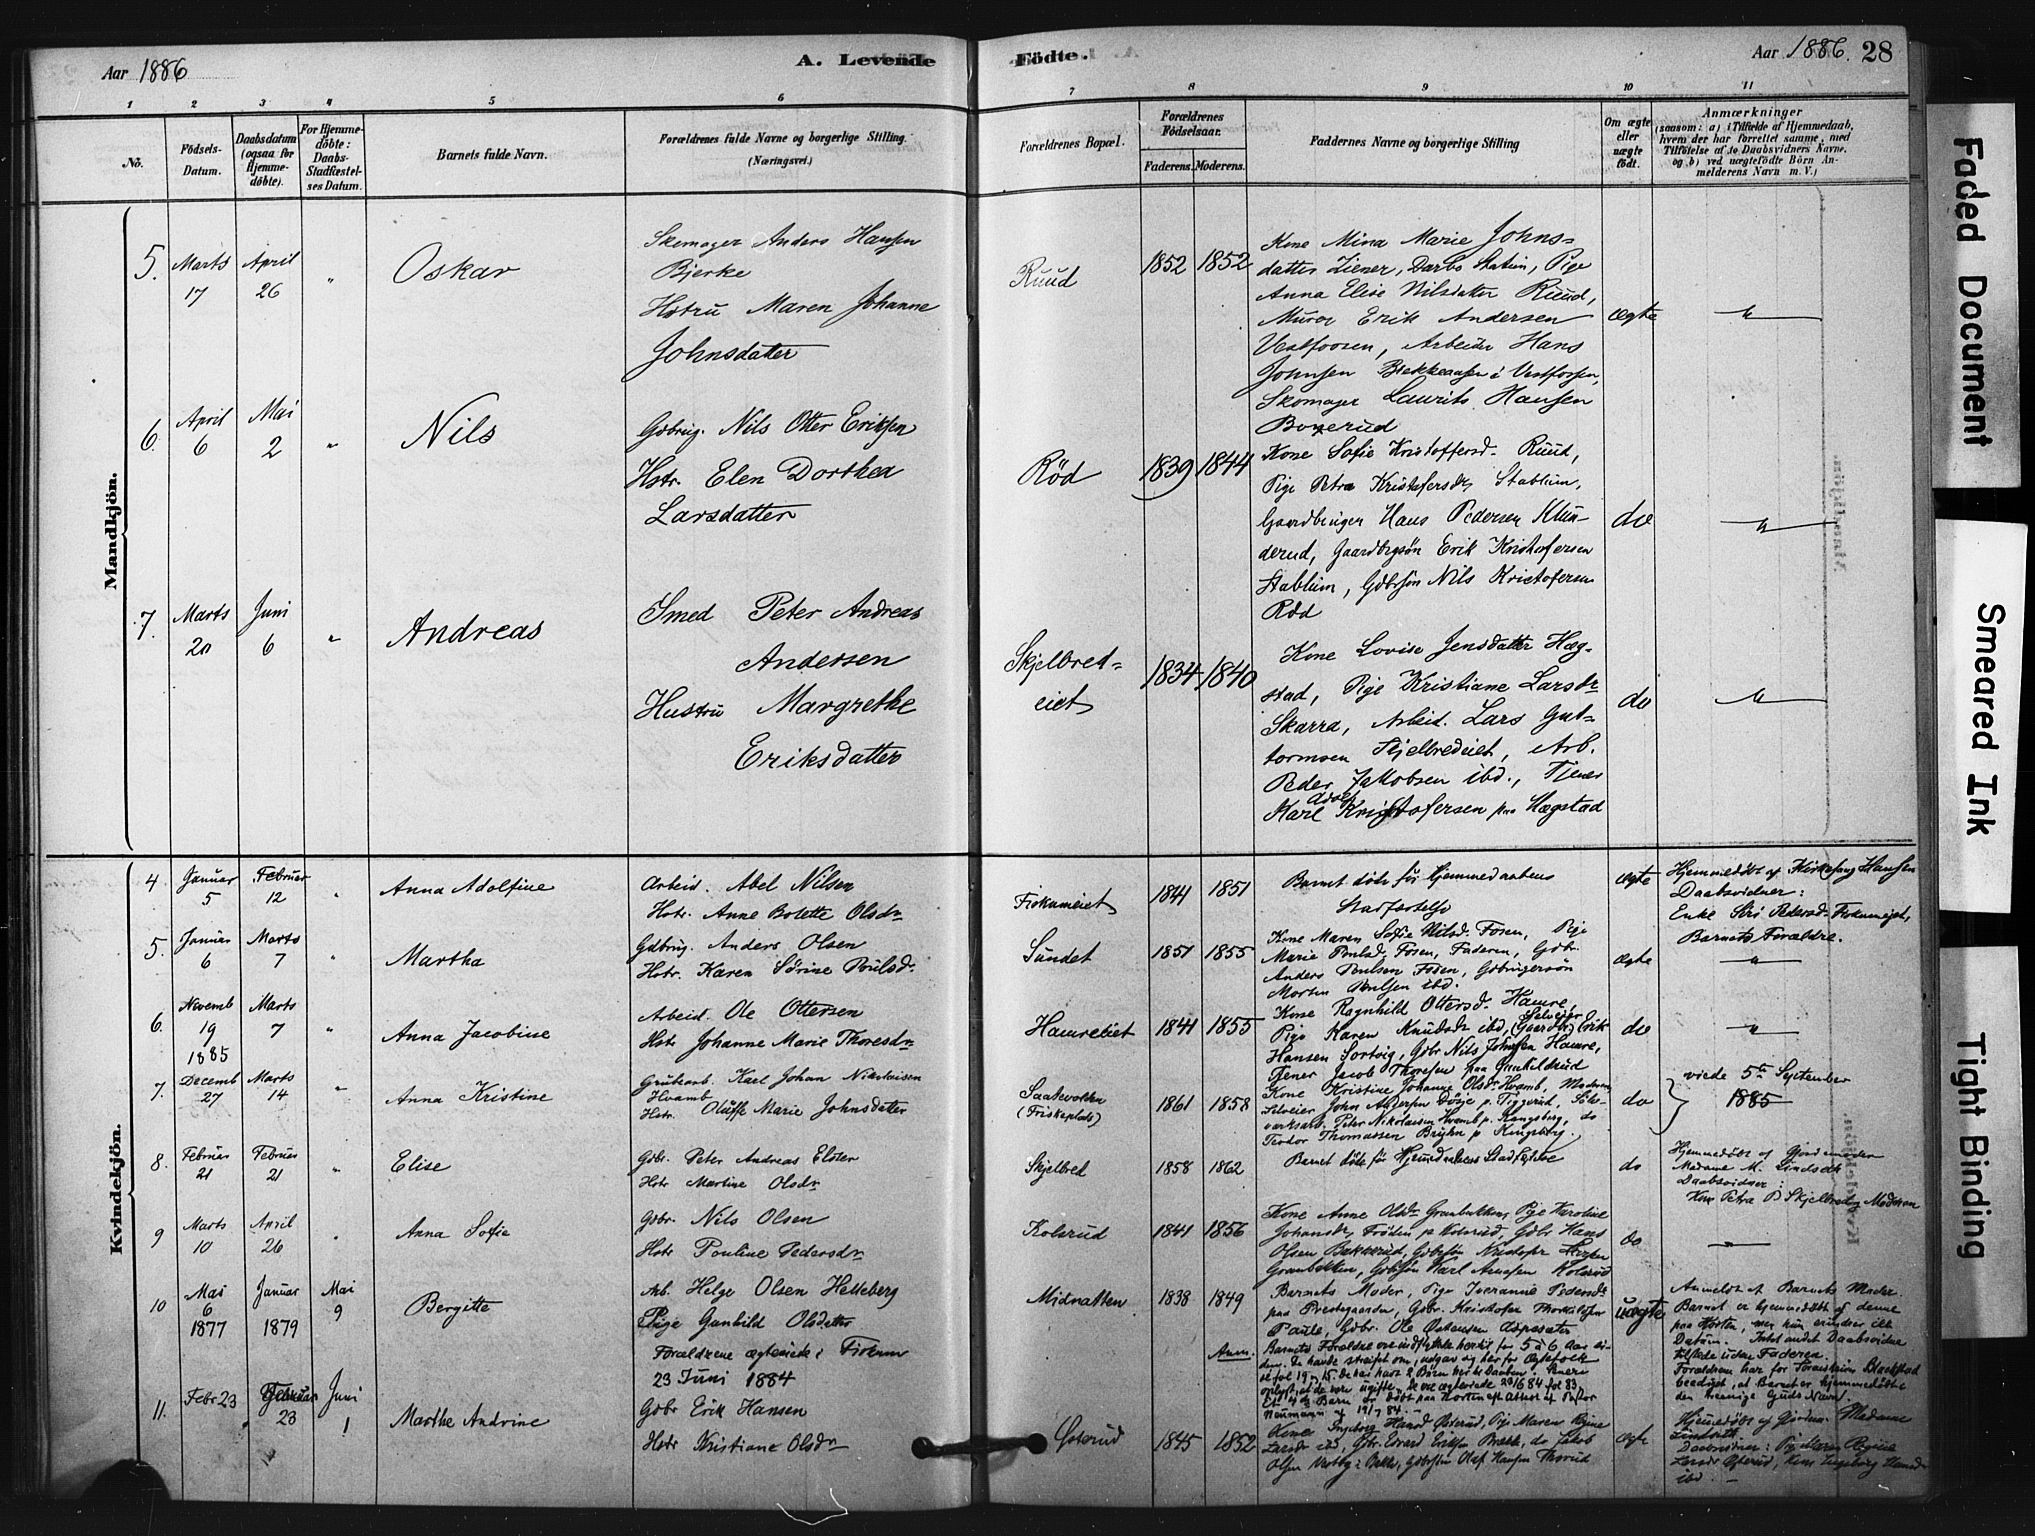 Aar 1886
A. Levende
Födte.
Aar 1886.
28
1 2 3 4 5 6 7 8 9 10 11
Nö.
Födsels-
Datum.
Daabsdatum
(ogsaa for
Hjemme-
döbte).
For Hjemme-
döbte:
Daabs-
Stadfæstel-
ses Datum.
Barnets fulde Navn.
Forældrenes fulde Navne og borgerlige Stilling
(Næringsvei.)
Forældrenes Bopæl.
Forældrenes
Födselsaar.
Faderens. Moderens.
Faddernes Navne og borgerlige Stilling
Om ægte
eller
uægte
födt.
Anmærkninger
(saasom: a) i Tilfælde af Hjemmedaab,
hvem der har forrettet samme, med
Tilföielse af to Daabsvidners Navne.
og b) ved uægtefödte Börn An-
melderens Navn m. V.)
Mandkjön.
5. Marts 17 April 26 " Oskar
Skomager Anders Hansen
Bjerke
Hstru Maren Johanne
Johnsdatter
Ruud
1852 1852
Kone Mina Marie Johns-
datter Ziener, Darbo Station, Pige
Anna Elise Nilsdatter Ruud,
Murer Erik Andersen
Vestfossen, Arbeider Hans
Johnsen Brekkeansen i Vestfossen,
Skomager Laurits Hansen
Boxerud
ægte
"
6. April 6 Mai 2 " Nils
Gdbrug. Nils Otter Eriksen
Hstr. Elen Dorthea
Larsdatter
Röd
1839 1844
Kone Sofie Kristoffersd. Ruud,
Pige Petra Kristofersdr Stablum,
Gaardbruger Hans Pedersen Klun-
derud, Gaardbrgsön Erik Kristofersen
Stablum, Gdbrsön Nils Kristofersen
Röd
do
"
7. Marts 20 Juni 6 " Andreas
Smed Peter Andreas
Andersen
Hustru Margrethe
Eriksdatter
Skjelbred-
eiet
1834 1840
Kone Lovise Jensdatter Hæg-
stad, Pige Kristiane Larsdr
Skarra, Arbeid. Lars Gut-
tormsen Skjelbredeiet, Arb.
Peder Jakobsen ibd., Tjener
Karl Adolf Kristofersen paa Hægstad
do
"
Kvindekjön.
4 Januar 5 Februar 12 " Anna Adolfine
Arbeid. Abel Nilsen
Hstr. Anne Bolette Olsdr
Fiskumeiet
1841 1851
Barnet döde för Hjemmedaabens
Stadfæstelse
ægte
Hjemmedöbt af Kirkesang. Hansen
Daabsvidner:
Enke Siri Pedersd. Fiskumeiet,
Barnets Forældre.
5. Januar 6 Marts 7 " Martha
Gdbrug. Anders Olsen
Hstr. Karen Sörine Poulsdr
Sundet
1851 1855
Kone Maren Sofie Nilsd. Fosen, Pige
Marie Poulsd. Fosen, Faderen, Gdbr.
Anders Poulsen Fosen, Gdbrugersön
Morten Poulsen ibd.
ægte
"
6. Novemb 19 1885 Marts 7 " Anna Jacobine
Arbeid. Ole Ottersen
Hstr Johanne Marie Thoresdr
Hamreeiet
1841 1855
Kone Ragnhild Ottersd. Hamre,
Pige Karen Knudsdr ibd, Selveier (Gaardbr) Erik
Hansen Sortvig, Gdbr Nils Johnsen Hamre,
Tjener Jacob Thoresen paa Gunhildrud
do
"
7. Decemb 27 Marts 14 " Anna Kristine
Grubearb. Karl Johan Nikolaisen
Hvamb
Hstr. Oluffe Marie Johnsdatter
Saatevolden
(Friskeplads)
1861 1858
Kone Kristine Johanne Olsdr Hvamb, Moderen,
Selveier John Andersen Dövje p. Tiggerud, Sölv-
værksarb. Peter Nikolaisen Hvamb p. Kongsberg, do
Teodor Thomassen Bryhn p. Kongsberg.
do
viede 5te September
1885
8. Februar 21 Februar 21 " Elise
Gdbr. Peter Andreas Elster
Hstr Martine Olsdr
Skjelbred
1858 1862
Barnet döde för Hjemmedaabens Stadfæstelse
do
Hjemmedöbt af Gjordemoder
Madame M. Lindseth
Daabsvidner:
Kone Petra P. Skjelbred og Moderen
9 Marts 10 April 26 " Anna Sofie
Gdbr. Nils Olsen
Hstr Pouline Pedersdr
Kolsrud
1841 1856
Kone Anne Olsdr Granbakken, Pige Karoline
Johansdr Fröden p Kolsrud, Gdbr Hans
Olsen Bakkerud, Gdbrsön Kristofer
Granbakken, Gdbrsön Karl Kolsrud
do
"
10 Mai 6 1877 Januar 1879 Mai 9 Bergitte
Arb. Helge Olsen Helleberg
Pige Gunhild Olsdatter
Forældrene ægteviede i Fiskum
23 Juni 1884
Midnatten
1838 1849
Barnets Moder, Pige Iverianne Pedersdr
paa Prestegaarden, Gdbr. Kristofer Thorkildsen
Paule, Gdbr. Ole
Anm. Barnets Forældre ere indflyttede hertil for 5 à 6 Aar si-
den. De havde streifet om, udgav sig her for Ægtefolk
se fol 19 og 15. De har havt 2 Börn her til Daaben. Senere
oplyst, at de vare ugifte, de ere ægteviede 23/6 84 fol 83
Et 4de Barn er döbt paa Horten eft. Attest af Pastor
Neumann af 19/7 84.
uægte
Anmeldt af Barnets Moder.
Barnet er hjemmedöbt af denne
paa Horten, men kun erindrer ikke
Datum. Intet andet Daabsvidne
tilstede uden Faderen.
Forældrene har for Formskriver Blackstad
beediget, at Barnet er hjemmedöbt
den treenige Guds Navn.
11. Febr 23 Februar 23 Juni 1 Marthe Andrine
Gdbr Erik Hansen
Hstr Kristiane Olsdr
Österud
1845 1852
Kone Ingeborg Hansd Österud, Pige Maren Regine
Larsdr ibd, Gdbr. Edvard Eriksen Bække, do Jakob
Olsen Vestby i Bakke, Gdbrsön Olaf Hansen Thorud
ægte
Hjemmedöbt af Gjordem. Madame
Lindseth
Daabsvidner: Pige Maren Regine
Larsdr Österud, Kone Ingeborg Hansdr
ibd. –
Faded Document
Smeared Ink
Tight Binding